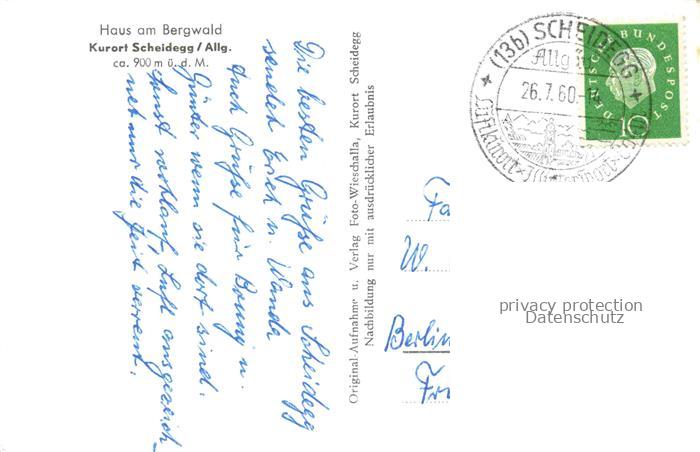 Haus am Bergwald
Kurort Scheidegg / Allg.
ca. 900 m ü. d. M.
Die besten Grüße aus Scheidegg
sendet Erich u. Wanda
Auch Grüße für Bruny u.
Günter wenn sie dort sind.
sonst wohlauf, Luft ausgezeich-
net nur die Zeit rennt.
Original-Aufnahme u. Verlag Foto-Wieschalla, Kurort Scheidegg
Nachbildung nur mit ausdrücklicher Erlaubnis
(13b) SCHEIDEGG
Allgäu
26.7.60
Luftkurort
DEUTSCHE BUNDESPOST
10
Fa
W.
Berlin
privacy protection
Datenschutz